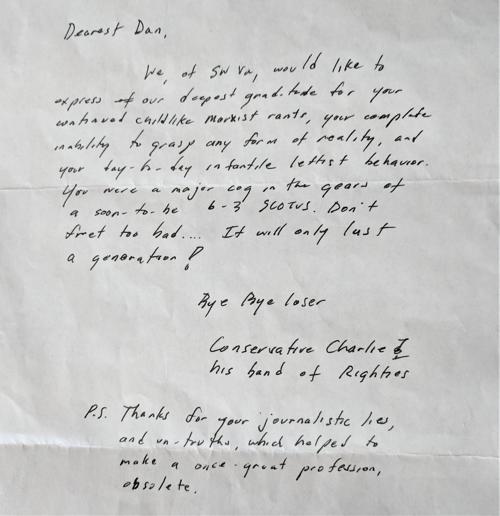 Dearest Dan,
We, of SW Va, would like to
express of our deepest gratitude for your
continued childlike Marxist rants, your complete
inability to grasp any form of reality, and
your day-to-day infantile leftist behavior.
You were a major cog in the gears of
a soon-to-be 6-3 SCOTUS. Don't
fret too bad.... It will only last
a generation!
Bye Bye loser
Conservative Charlie &
his band of Righties
P.S. Thanks for your journalistic lies,
and un-truths, which helped to
make a once-great profession,
obsolete.